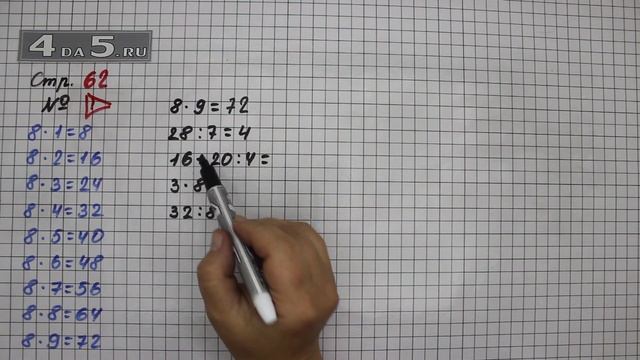 4 DA 5.RU
Стр. 62
№ !
8·1=8
8·2=16
8·3=24
8·4=32
8·5=40
8·6=48
8·7=56
8·8=64
8·9=72
8·9=72
28:7=4
16 20:4=
3·8
32:8